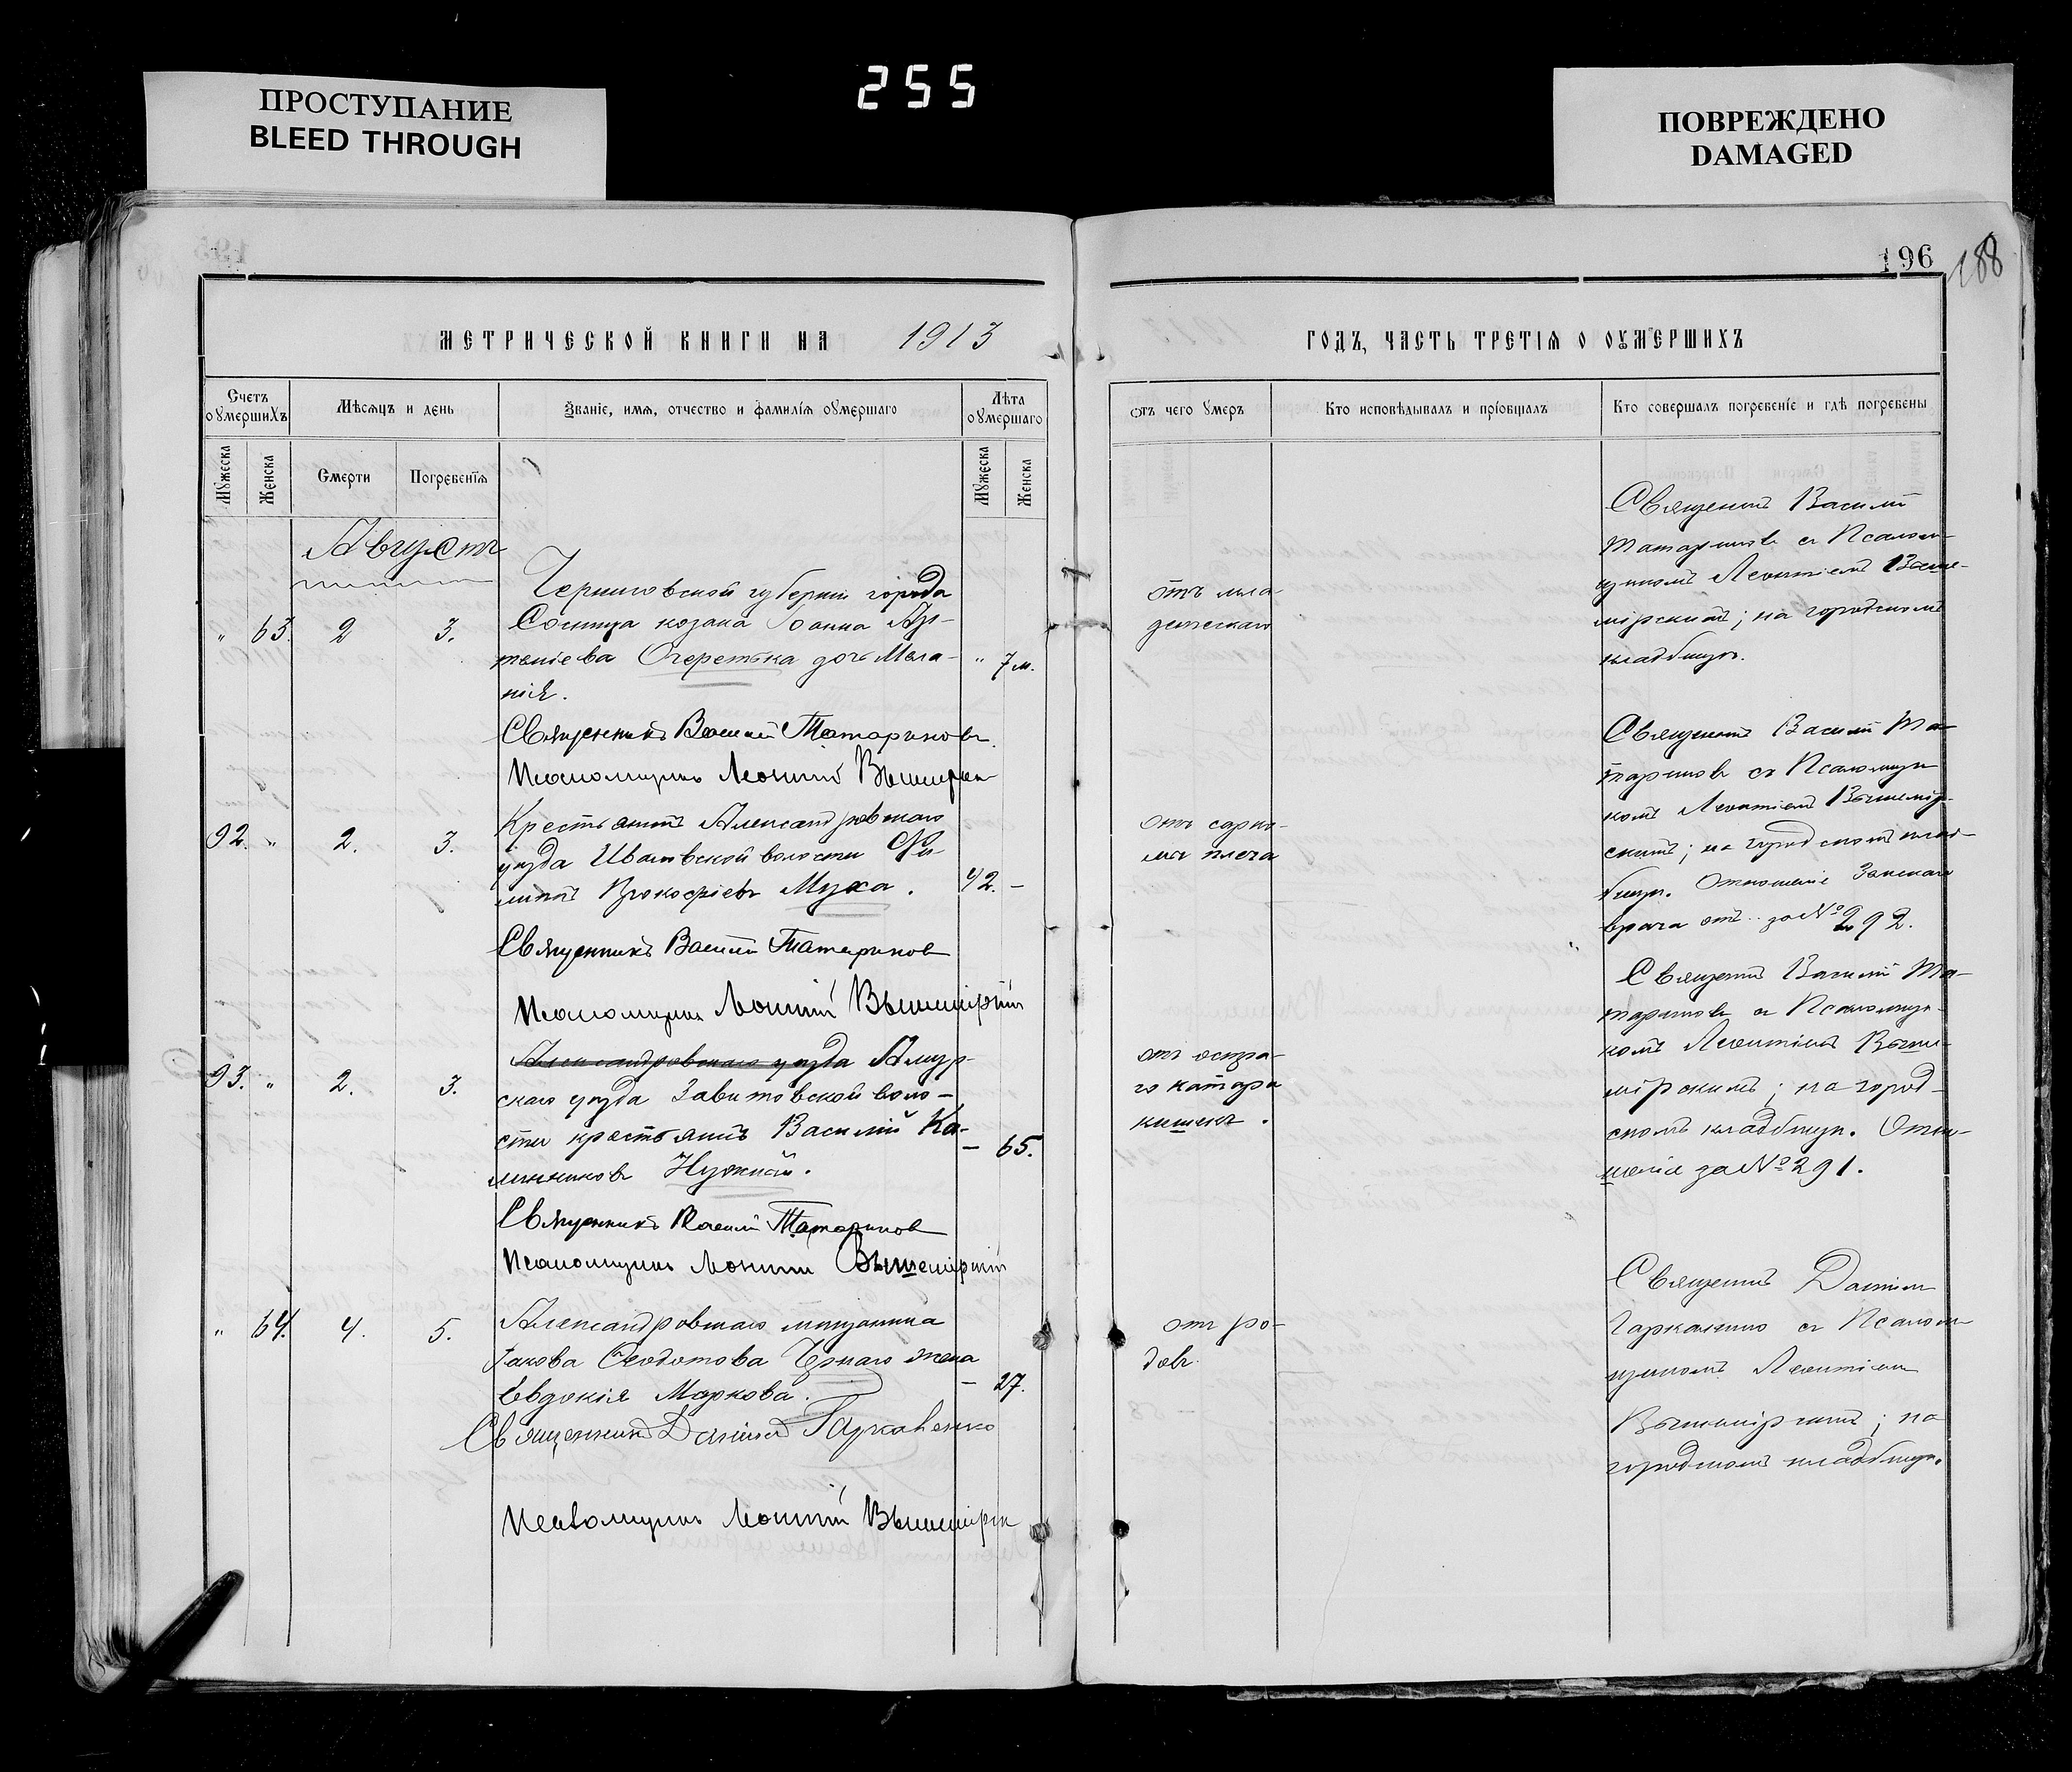 ПРОСТУПАНИЕ
BLEED THROUGH
255
ПОВРЕЖДЕНО
DAMAGED
196
188
МЕТРИЧЕСКОЙ КНИГИ НА 1913
ГОДЪ, ЧАСТЬ ТРЕТІѦ О ОУМЕРШИХЪ
Счетъ оумершихъ
Мѣсяцъ и день
Званіе, имя, отчество и фамилія оумершаго
Лѣта оумершаго
Отъ чего умеръ
Кто исповѣдывалъ и пріобщалъ
Кто совершалъ погребеніе и гдѣ погребены
Мужеска
Женска
Смерти
Погребенія
Мужеска
Женска
Августъ
" 63. 2 3.
Черниговской губерніи города
Сосница козака Іоанна
Очеретька дочь Мела-
нія.
" 7 м.
отъ мла-
денческаго
Священникъ Василій
Татариновъ съ Псалом-
щикомъ Леонтіемъ Выше-
мірскимъ; на городскомъ
кладбищѣ.
Священникъ Василій Татариновъ
Псаломщикъ Леонтій Вышемірскій
92. " 2. 3.
Крестьянинъ Александровскаго
уѣзда Ивановской волости Фи-
липпъ Прокофіевъ Муха.
42. –
отъ сарко-
мы плеча
Священникъ Василій Та-
тариновъ съ Псаломщи-
комъ Леонтіемъ Вышемір-
скимъ; на городскомъ клад-
бищѣ. Отношеніе Земскаго
врача отъ .. за № 292.
Священникъ Василій Татаринов
Псаломщикъ Леонтій Вышемірскій
93. " 2. 3.
Александровскаго уѣзда Амур-
скаго уѣзда Завитовской воло-
сти крестьянинъ Василій Ка-
линниковъ Нужный.
– 65.
отъ остра-
го катара
кишекъ.
Священникъ Василій Та-
тариновъ съ Псаломщи-
комъ Леонтіемъ Выше-
мірскимъ; на город-
скомъ кладбищѣ. Отно-
шеніе за № 291.
Священникъ Василій Татаринов
Псаломщикъ Леонтій Вышемірскій
" 64. 4. 5.
Александровскаго мѣщанина
Іакова Ѳеодотова Чернаго жена
Евдокія Маркова.
– 27.
отъ ро-
довъ.
Священникъ Даніилъ
Гаркавенко съ Псалом-
щикомъ Леонтіемъ
Вышемірскимъ; на
городскомъ кладбищѣ.
Священникъ Даніилъ Гаркавенко
Псаломщикъ Леонтій Вышемірскій